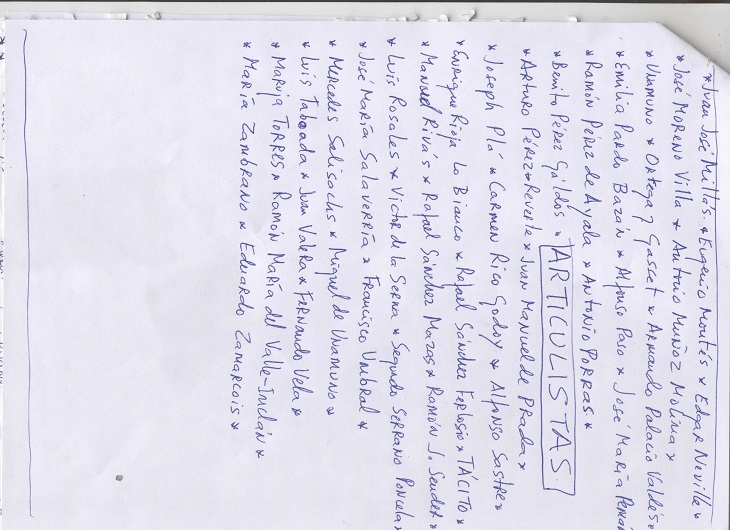 * Juan José Millás * Eugenio Montés * Edgar Neville *
* José Moreno Villa * Antonio Muñoz Molina *
* Unamuno * Ortega y Gasset * Armando Palacio Valdés
* Emilia Pardo Bazán * Alfonso Paso * José María Pemán
* Ramón Pérez de Ayala * Antonio Porras *
* Benito Pérez Galdós * ARTICULISTAS.
* Arturo Pérez-Reverte * Juan Manuel de Prada *
* Joseph Plá * Carmen Rico Godoy * Alfonso Sastre *
* Enrique Rioja Lo Bianco * Rafael Sánchez Ferlosio * TÁCITO *
* Manuel Rivas * Rafael Sánchez Mazas * Ramón J. Sender *
* Luis Rosales * Víctor de la Serna * Segundo Serrano Poncela *
* José María Salaverría * Francisco Umbral *
* Mercedes Salisachs * Miguel de Unamuno *
* Luis Taboada * Juan Valera * Fernando Vela *
* Maruja Torres * Ramón María del Valle-Inclán *
* María Zambrano * Eduardo Zamacois *